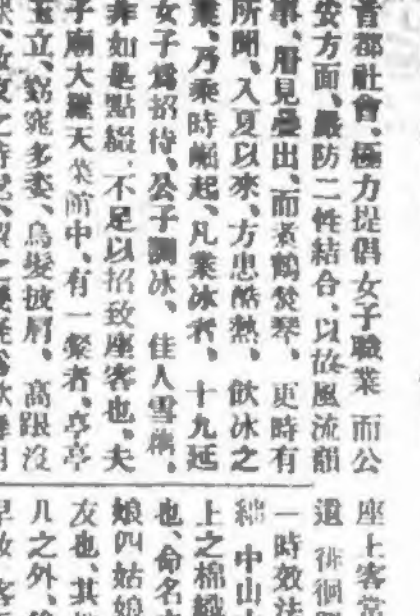 首都社會、極力提倡女子職業 而公
安方面、嚴防二性結合、以故風流韻
事、屑見疊出、而煮鶴焚琴、更時有
所聞、入夏以來、方患酷熱、飲冰之
業、乃乘時崛起、凡業冰者、十九延
女子爲招待、公子調冰、佳人雪藕、
非如是點綴、不足以招致座客也、夫
子廟大羅天茶 中、有一 者、亭亭
玉立、窈窕多姿、烏髮披肩、高跟沒
座上客常
遺 徘徊
一時效
中山
上之棉織
也、命名
娘四姑娘
友也、其
几之外、